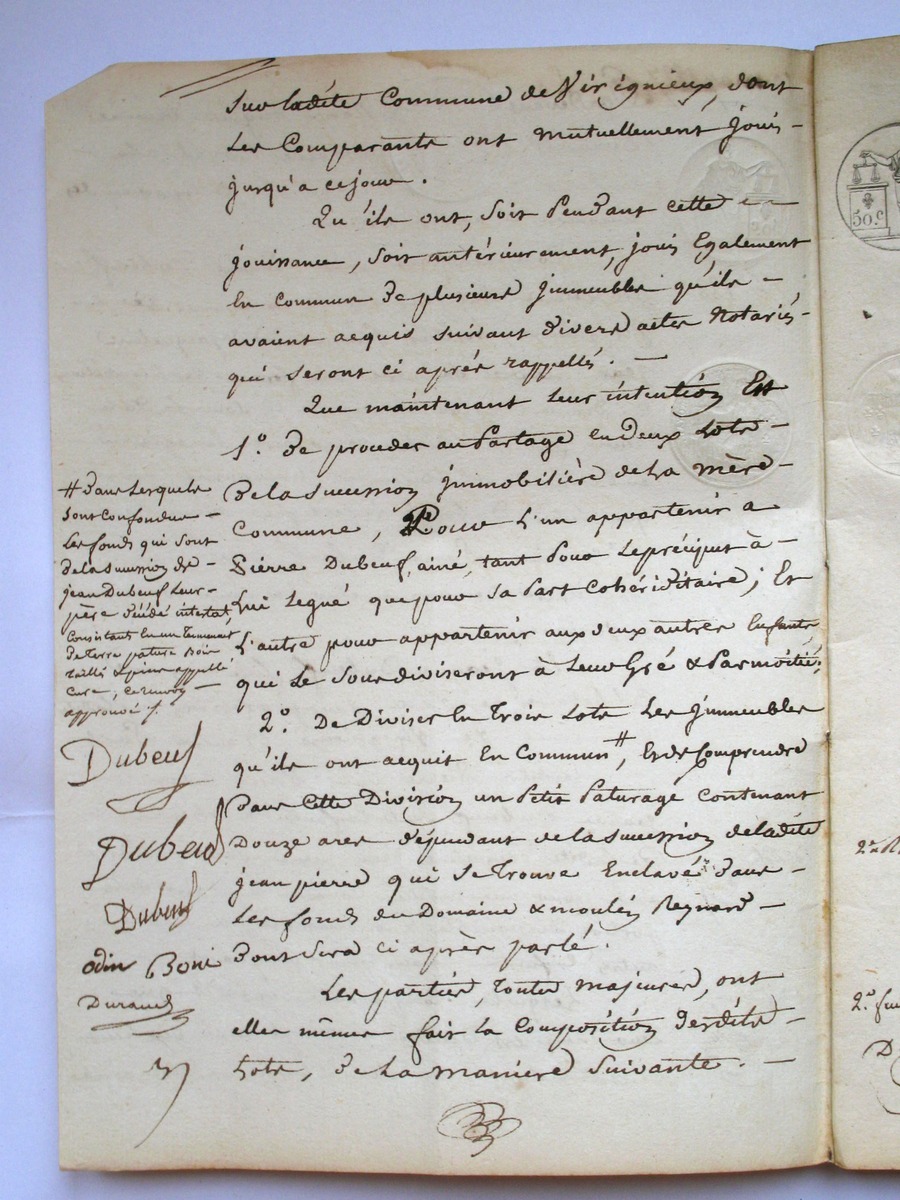 sur ladite Commune de Virignieux, dont
Les Comparants ont mutuellement joui -
jusqu'a ce jour.
Qu'ils ont, soit Pendant cette
jouissance, soit antérieurement, joui Egalement
En Commun de plusieurs jmmeubles qu'ils -
avaient acquis suivant divers actes Notariés -
qui seront ci après rappellés. -
Que maintenant leur intention Est
1.° de proceder au Partage en deux Lots -
De la succession jmmobilière de La mère -
Commune, Pour L'un appartenir a
Pierre Dubeuf, ainé, tant Pour Le préciput à -
Lui Legué que pour sa Part Cohéréditaire; Et
L'autre pour appartenir aux deux autres Enfants
qui Le Sousdiviseront à Leur Gré & Par moitié;
2.° De Diviser En Trois Lots Les jmmeubles
qu'ils ont acquit En Commun #, Et de Comprendre
Dans Cette Division un Petit Paturage Contenant
Douze ares dépendant de la succession de ladite
jean pierre qui se Trouve Enclavé dans -
Les fonds du Domaine & moulin Reynard -
Dont sera ci après parlé.
Les parties, toutes majeures, ont
elles mêmes fait La Composition desdits -
Lots, de La manière suivante. -
# Dans Lesquels
sont confondus -
Les fonds qui sont
de la succession de -
jean Dubeuf Leur -
père décédé intestat,
Consistant En un Tenement
de terre, pature Bois
taillis & pinée appellé
approuvé
Dubeuf
Dubeuf
Dubeuf
odin Boni
Durand
50.c
2.°